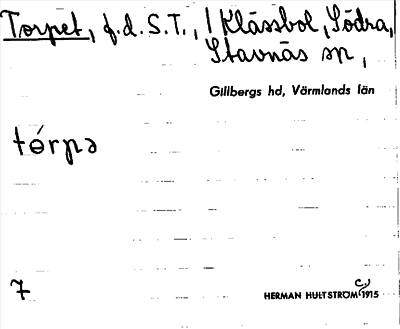 Torpet, f.d. S.T., / Klässbol, Södra,
Stavnäs sn,
Gillbergs hd, Värmlands län
tórpə
7
HERMAN HULTSTRÖM 1915